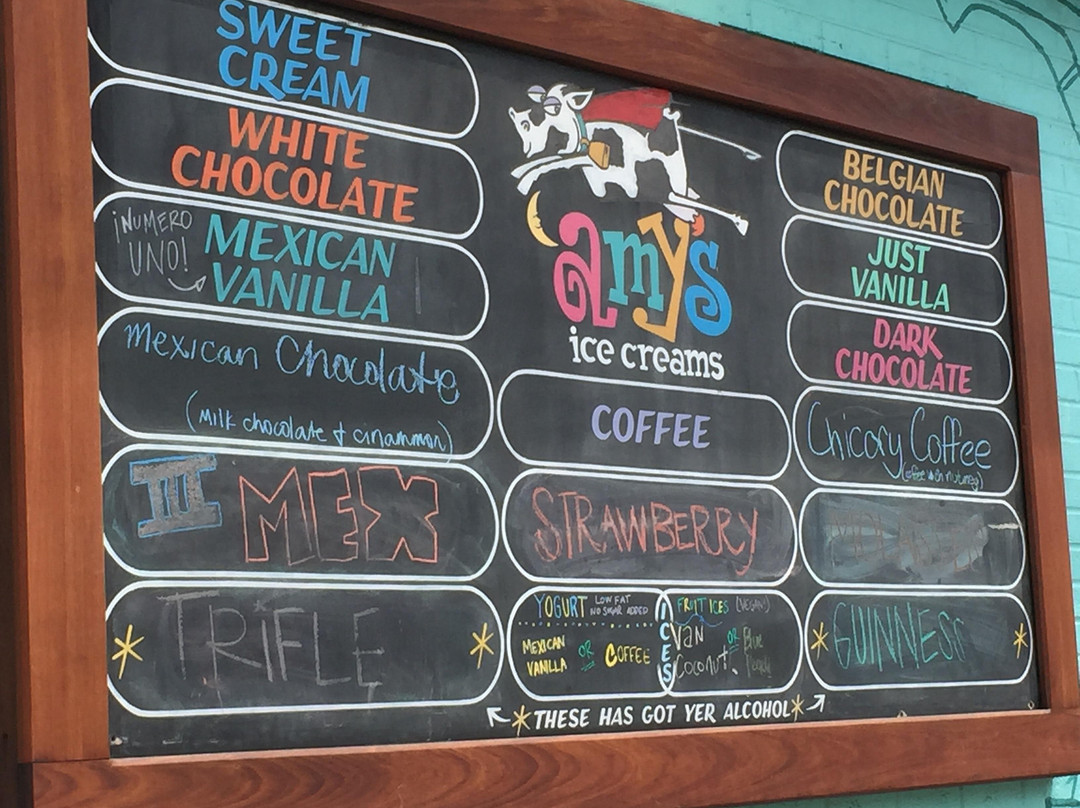 SWEET
CREAM
WHITE
CHOCOLATE
¡NUMERO
UNO!
MEXICAN
VANILLA
Mexican Chocolate
(Milk chocolate & cinammon)
III MEX
*TRIFLE*
amy's
ice creams
COFFEE
STRAWBERRY
YOGURT LOW FAT
NO SUGAR ADDED
MEXICAN
VANILLA OR COFFEE
ICES
FRUIT ICES (VEGAN!)
Van
Coconut. OR Blue
BELGIAN
CHOCOLATE
JUST
VANILLA
DARK
CHOCOLATE
Chicory Coffee
(coffee with nutmeg)
*GUINNESS*
*THESE HAS GOT YER ALCOHOL*